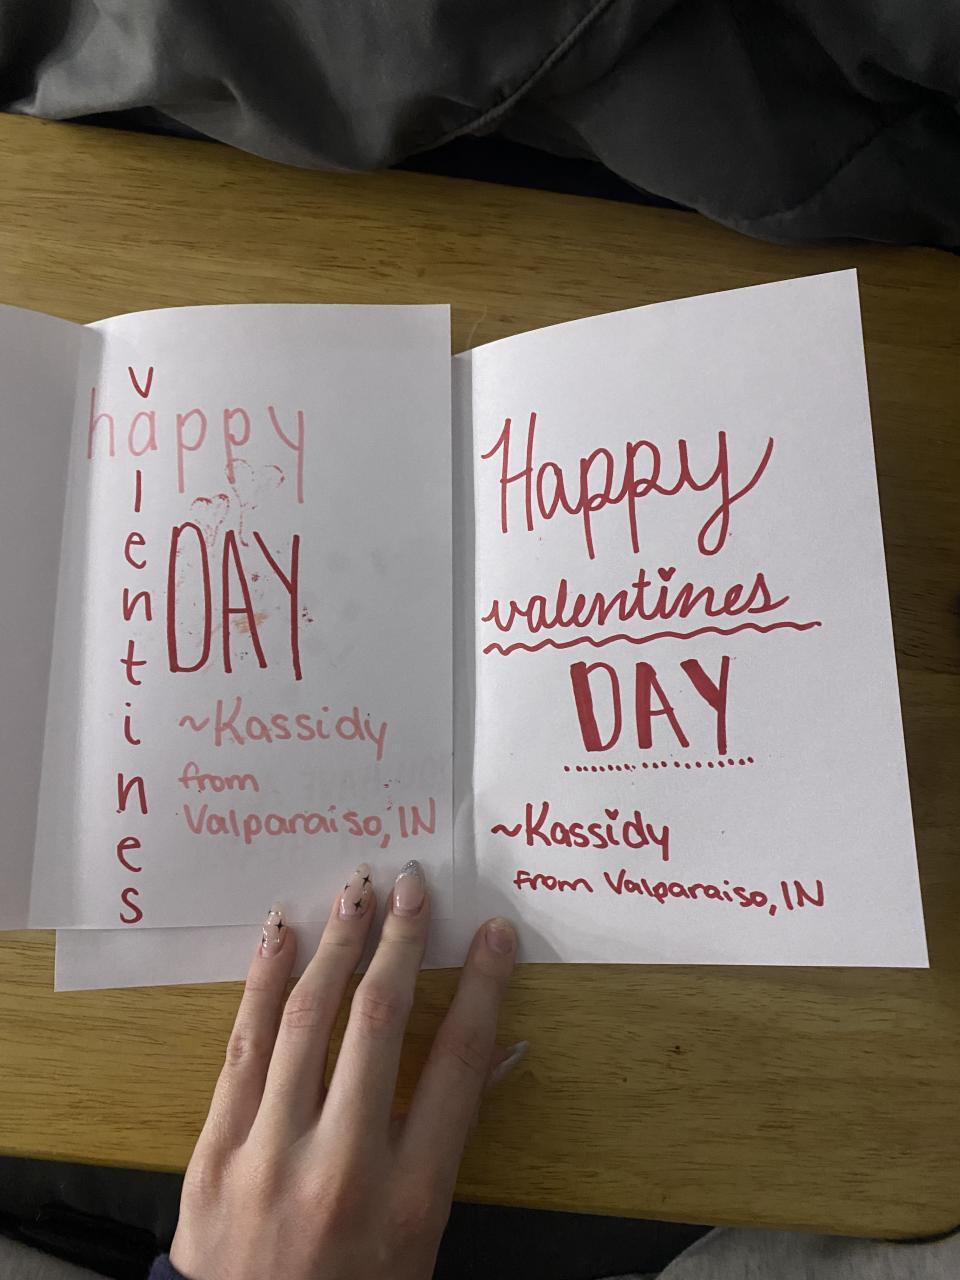 valentines
happy
DAY
~Kassidy
from
Valparaiso, IN
Happy
valentines
DAY
~Kassidy
from Valparaiso, IN